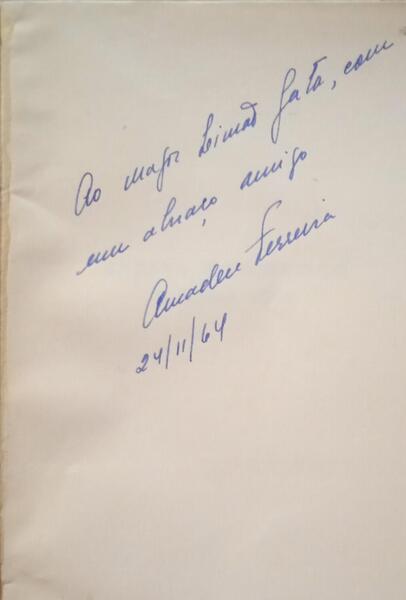 Ao major Gata, com
um abraço amigo
Amadeu Ferreira
24/11/64